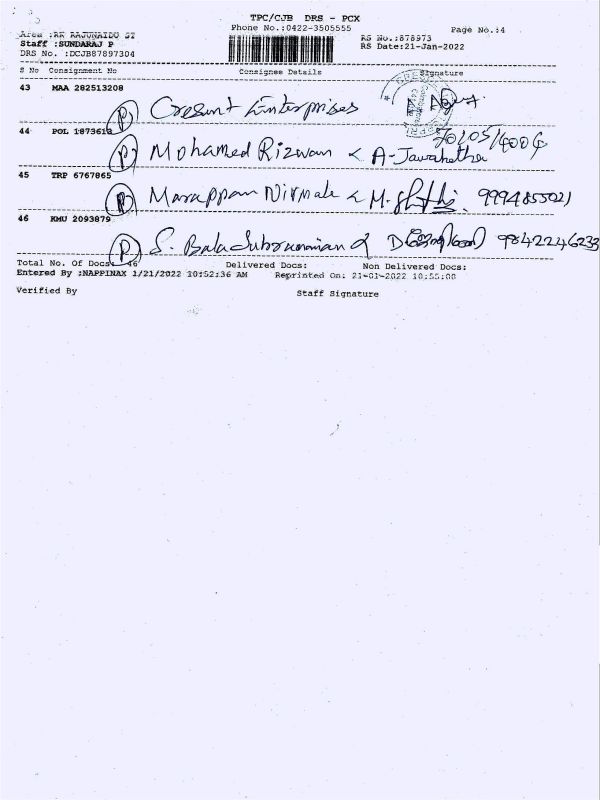 TPC/CJB DRS - PCX
Phone No.:0422-3505555
Page No.:4
Area :RK RAJUNAIDU ST
Staff :SUNDARAJ P
RS No.:878973
DRS No. :DCJB87897304
RS Date:21-Jan-2022
S No Consignment No Consignee Details Signature
43 MAA 282513208
(P) Cresunt Enterprises
44 POL 1873613
(P) Mohamed Rizwan & A-Javahetha
45 TRP 6767865
(P) Marappan Nirmala & M. 9994855021
46 KMU 2093879
(P) S. Balasubramanian & D 9842246233
Total No. Of Docs: 46 Delivered Docs: Non Delivered Docs:
Entered By :NAPPINAX 1/21/2022 10:52:36 AM Reprinted On: 21-01-2022 10:55:08
Verified By Staff Signature